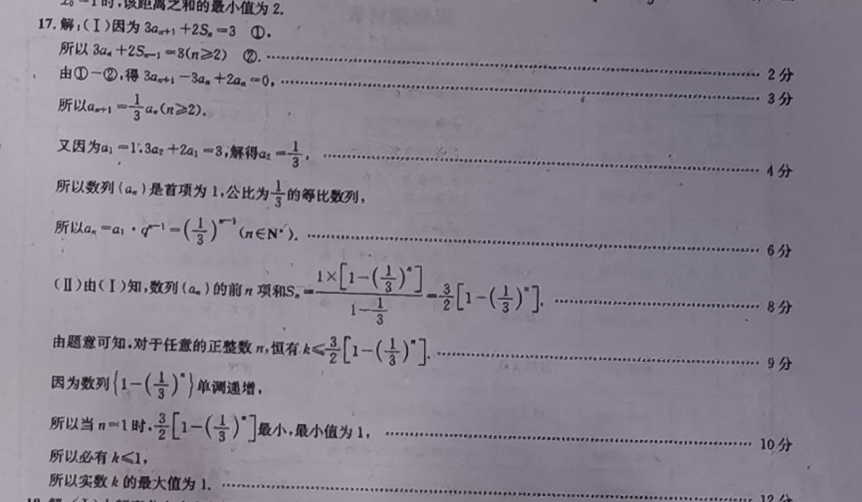 时,该距离之和的最小值为 2.
17.解:(Ⅰ)因为 3aₙ₊₁+2Sₙ=3 ①.
所以 3aₙ+2Sₙ₋₁=3(n≥2) ②. 2分
由①-②,得 3aₙ₊₁-3aₙ+2aₙ=0, 3分
所以aₙ₊₁=1/3 aₙ(n≥2).
又因为a₁=1,3a₂+2a₁=3,解得a₂=1/3, 4分
所以数列{aₙ}是首项为 1,公比为1/3的等比数列,
所以aₙ=a₁·qⁿ⁻¹=(1/3)ⁿ⁻¹(n∈N*). 6分
(Ⅱ)由(Ⅰ)知,数列{aₙ}的前 n 项和Sₙ=1×[1-(1/3)ⁿ]/(1-1/3)=3/2[1-(1/3)ⁿ]. 8分
由题意可知,对于任意的正整数 n,恒有 k≤3/2[1-(1/3)ⁿ]. 9分
因为数列{1-(1/3)ⁿ}单调递增,
所以当 n=1时,3/2[1-(1/3)ⁿ]最小,最小值为 1, 10分
所以必有 k≤1,
所以实数 k 的最大值为 1. 12分